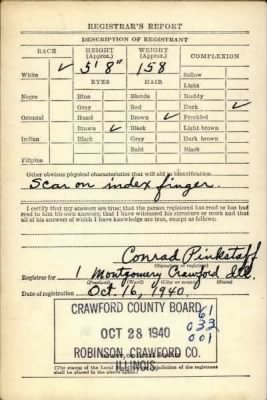 REGISTRAR'S REPORT
DESCRIPTION OF REGISTRANT
RACE HEIGHT (Approx.) WEIGHT (Approx.) COMPLEXION
White ✓ 5' 8" 158 Sallow
EYES HAIR Light
Negro Blue Blonde Ruddy
Gray Red Dark ✓
Oriental Hazel Brown ✓ Freckled
Brown ✓ Black Light brown
Indian Black Gray Dark brown
Bald Black
Filipino
Other obvious physical characteristics that will aid in identification
Scar on index finger.
I certify that my answers are true; that the person registered has read or has had
read to him his own answers; that I have witnessed his signature or mark and that
all of his answers of which I have knowledge are true, except as follows:
Conrad Pinkstaff
(Signature of registrar)
Registrar for 1 Montgomery Crawford Ill.
(Precinct) (Ward) (City or county) (State)
Date of registration Oct. 16, 1940.
CRAWFORD COUNTY BOARD 61
OCT 28 1940 033
001
ROBINSON, CRAWFORD CO.
ILLINOIS
(The stamp of the Local Board
shall be placed in the above space.)